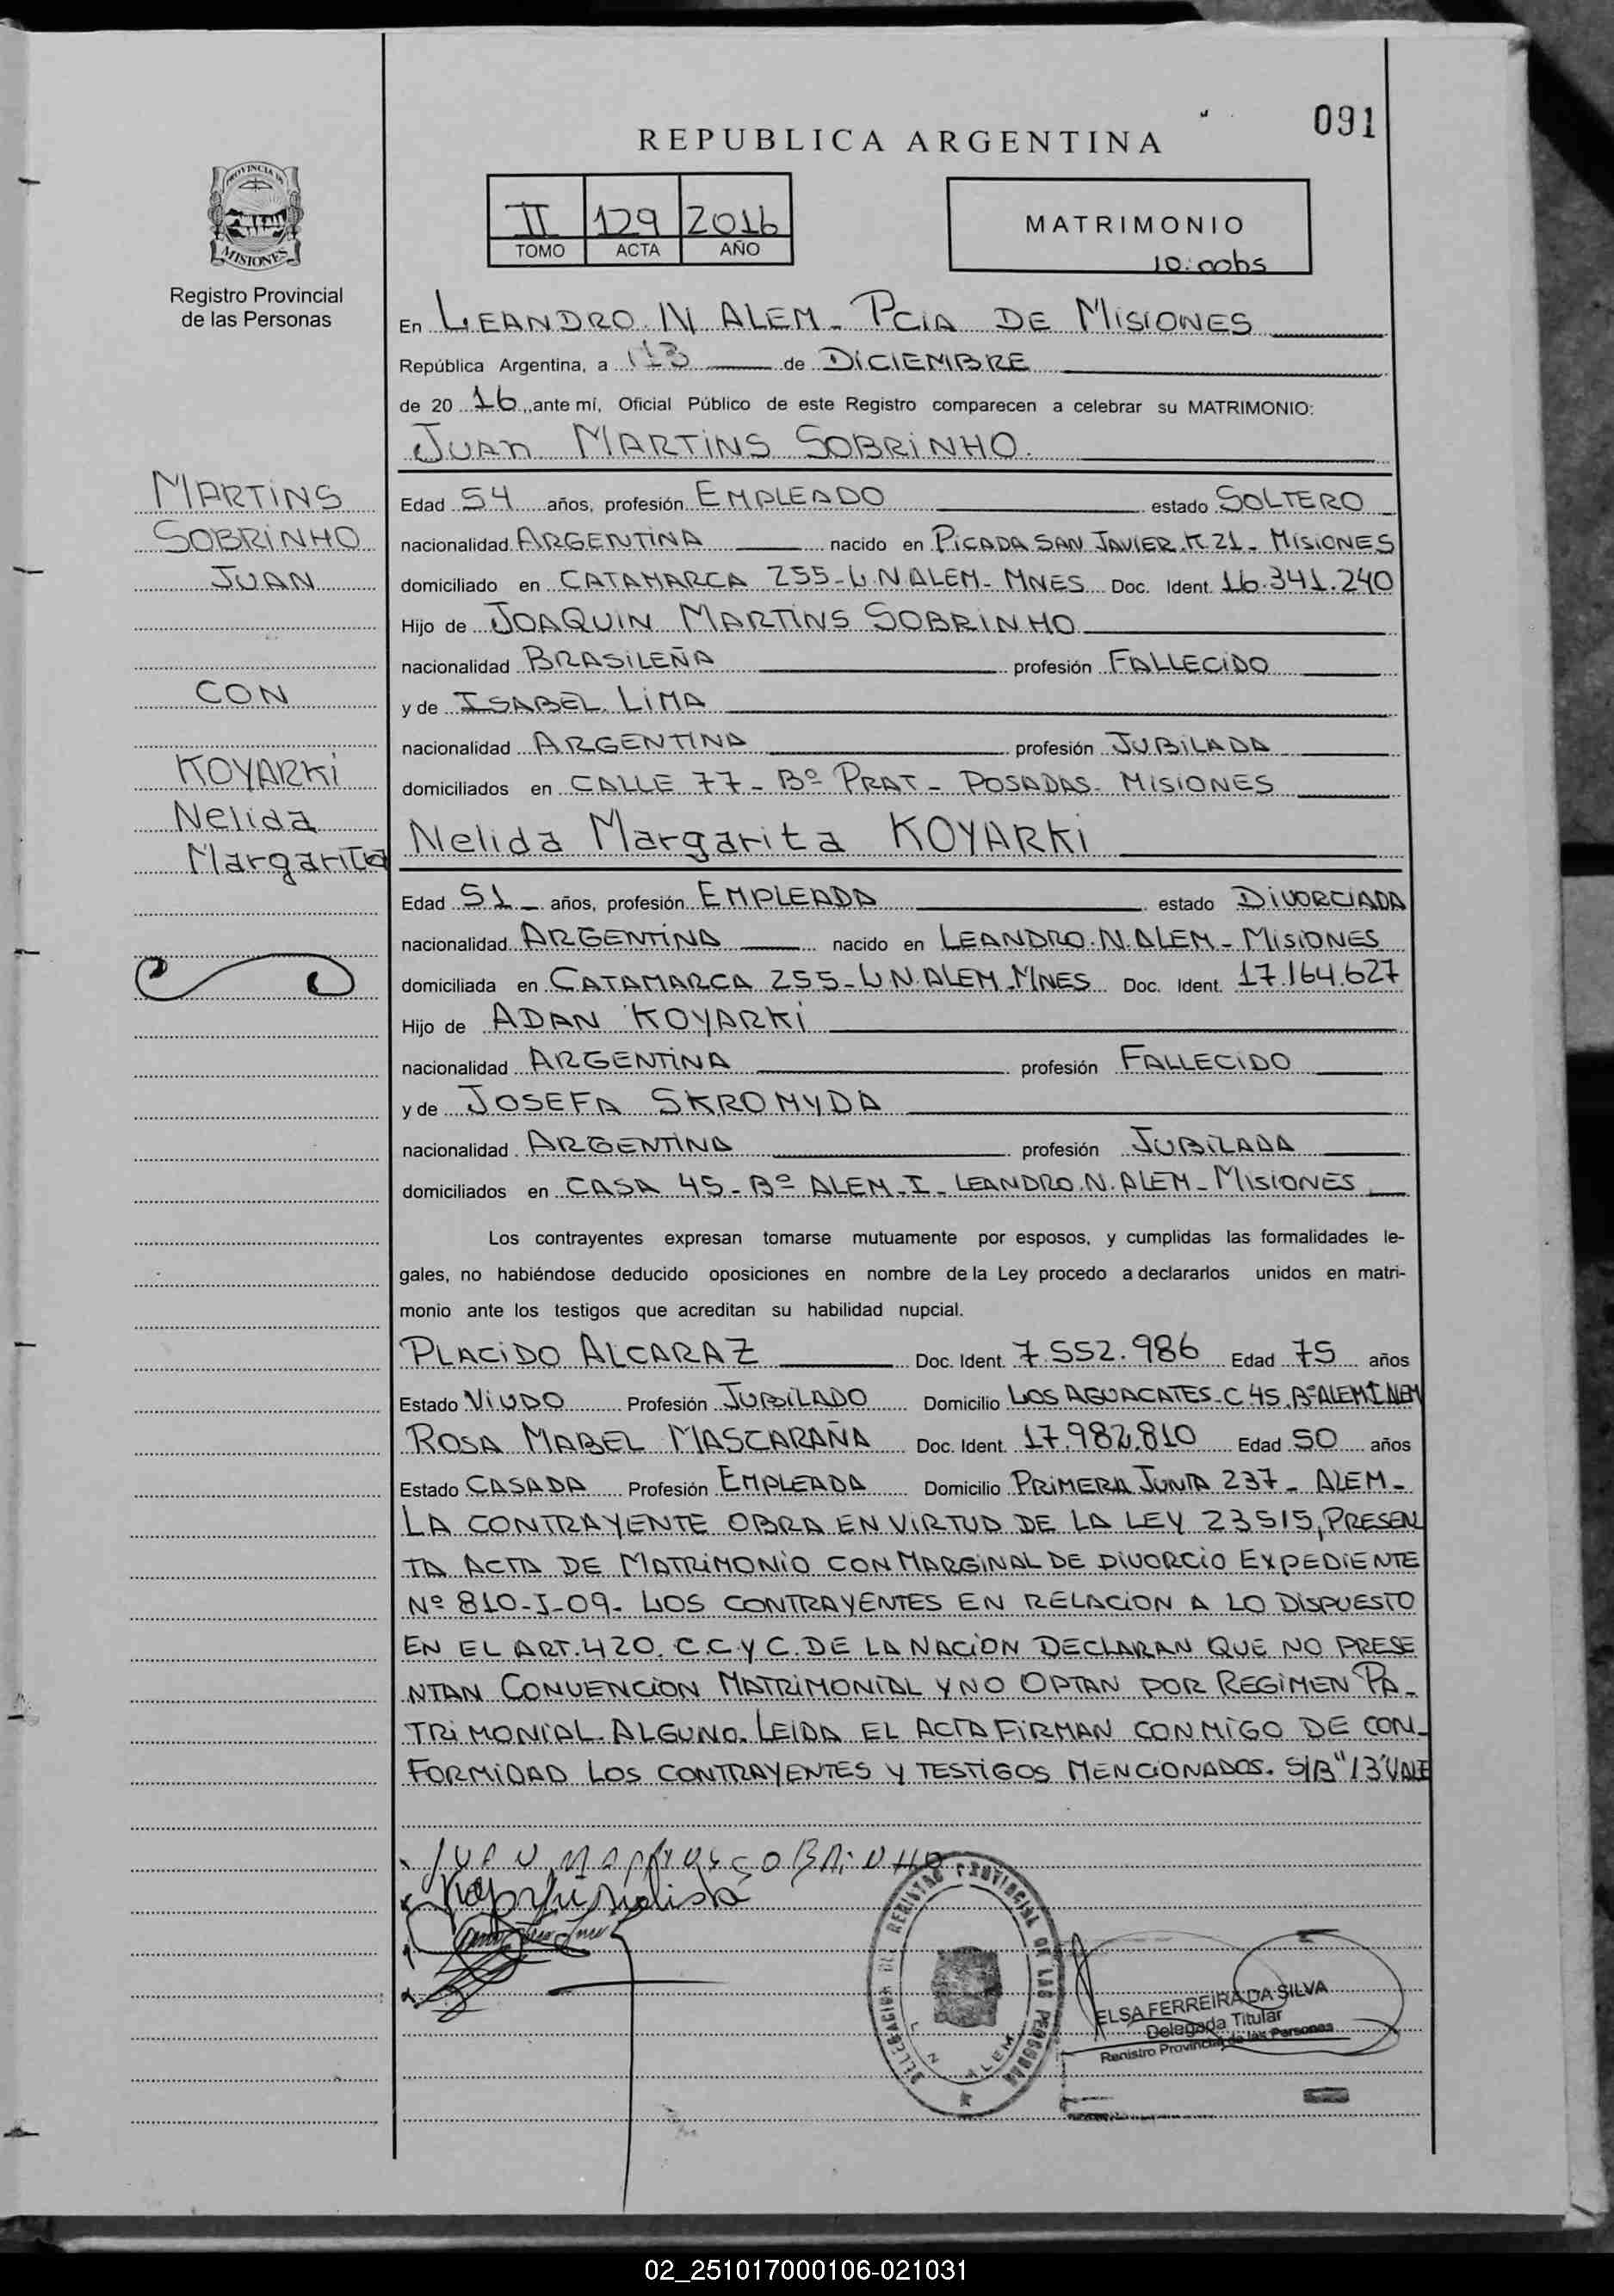 091
REPUBLICA ARGENTINA
PROVINCIA DE
MISIONES
Registro Provincial
de las Personas
II 129 2016
TOMO ACTA AÑO
MATRIMONIO
10:00hs
En LEANDRO N ALEM - PCIA DE MISIONES
República Argentina, a 13 de DICIEMBRE
de 20 16 ante mí, Oficial Público de este Registro comparecen a celebrar su MATRIMONIO:
JUAN MARTINS SOBRINHO
MARTINS
SOBRINHO
JUAN
CON
KOYARKI
Nelida
Margarita
Edad 54 años, profesión EMPLEADO estado SOLTERO
nacionalidad ARGENTINA nacido en PICADA SAN JAVIER. K 21 - MISIONES
domiciliado en CATAMARCA 255 - L. N ALEM - MNES Doc. Ident. 16.341.240
Hijo de JOAQUIN MARTINS SOBRINHO
nacionalidad BRASILEÑA profesión FALLECIDO
y de ISABEL LIMA
nacionalidad ARGENTINA profesión JUBILADA
domiciliados en CALLE 77 - Bº PRAT - POSADAS - MISIONES
Nelida Margarita KOYARKI
Edad 51 - años, profesión EMPLEADA estado DIVORCIADA
nacionalidad ARGENTINA nacido en LEANDRO. N. ALEM - MISIONES
domiciliada en CATAMARCA 255 - L. N. ALEM - MNES Doc. Ident. 17.164.627
Hijo de ADAN KOYARKI
nacionalidad ARGENTINA profesión FALLECIDO
y de JOSEFA SKROMYDA
nacionalidad ARGENTINA profesión JUBILADA
domiciliados en CASA 45 - Bº ALEM - I - LEANDRO. N. ALEM - MISIONES
Los contrayentes expresan tomarse mutuamente por esposos, y cumplidas las formalidades le-
gales, no habiéndose deducido oposiciones en nombre de la Ley procedo a declararlos unidos en matri-
monio ante los testigos que acreditan su habilidad nupcial.
PLACIDO ALCARAZ Doc. Ident. 7.552.986 Edad 75 años
Estado VIUDO Profesión JUBILADO Domicilio LOS AGUACATES - C. 45. Bº ALEM I ALEM
ROSA MABEL MASCARAÑA Doc. Ident. 17.982.810 Edad 50 años
Estado CASADA Profesión EMPLEADA Domicilio PRIMERA JUNTA 237 - ALEM -
LA CONTRAYENTE OBRA EN VIRTUD DE LA LEY 23515, PRESEN
TA ACTA DE MATRIMONIO CON MARGINAL DE DIVORCIO EXPEDIENTE
Nº 810-J-09- LOS CONTRAYENTES EN RELACION A LO DISPUESTO
EN EL ART. 420. C.C. Y C. DE LA NACION DECLARAN QUE NO PRESE
NTAN CONVENCION MATRIMONIAL Y NO OPTAN POR REGIMEN PA-
TRIMONIAL ALGUNO. LEIDA EL ACTA FIRMAN CONMIGO DE CON-
FORMIDAD LOS CONTRAYENTES Y TESTIGOS MENCIONADOS. S/B "13" VALE
JUAN MARTINS SOBRINHO
DELEGACION DEL REGISTRO PROVINCIAL DE LAS PERSONAS
L N ALEM
ELSA FERREIRA DA SILVA
Delegada Titular
Registro Provincial de las Personas
02_251017000106-021031